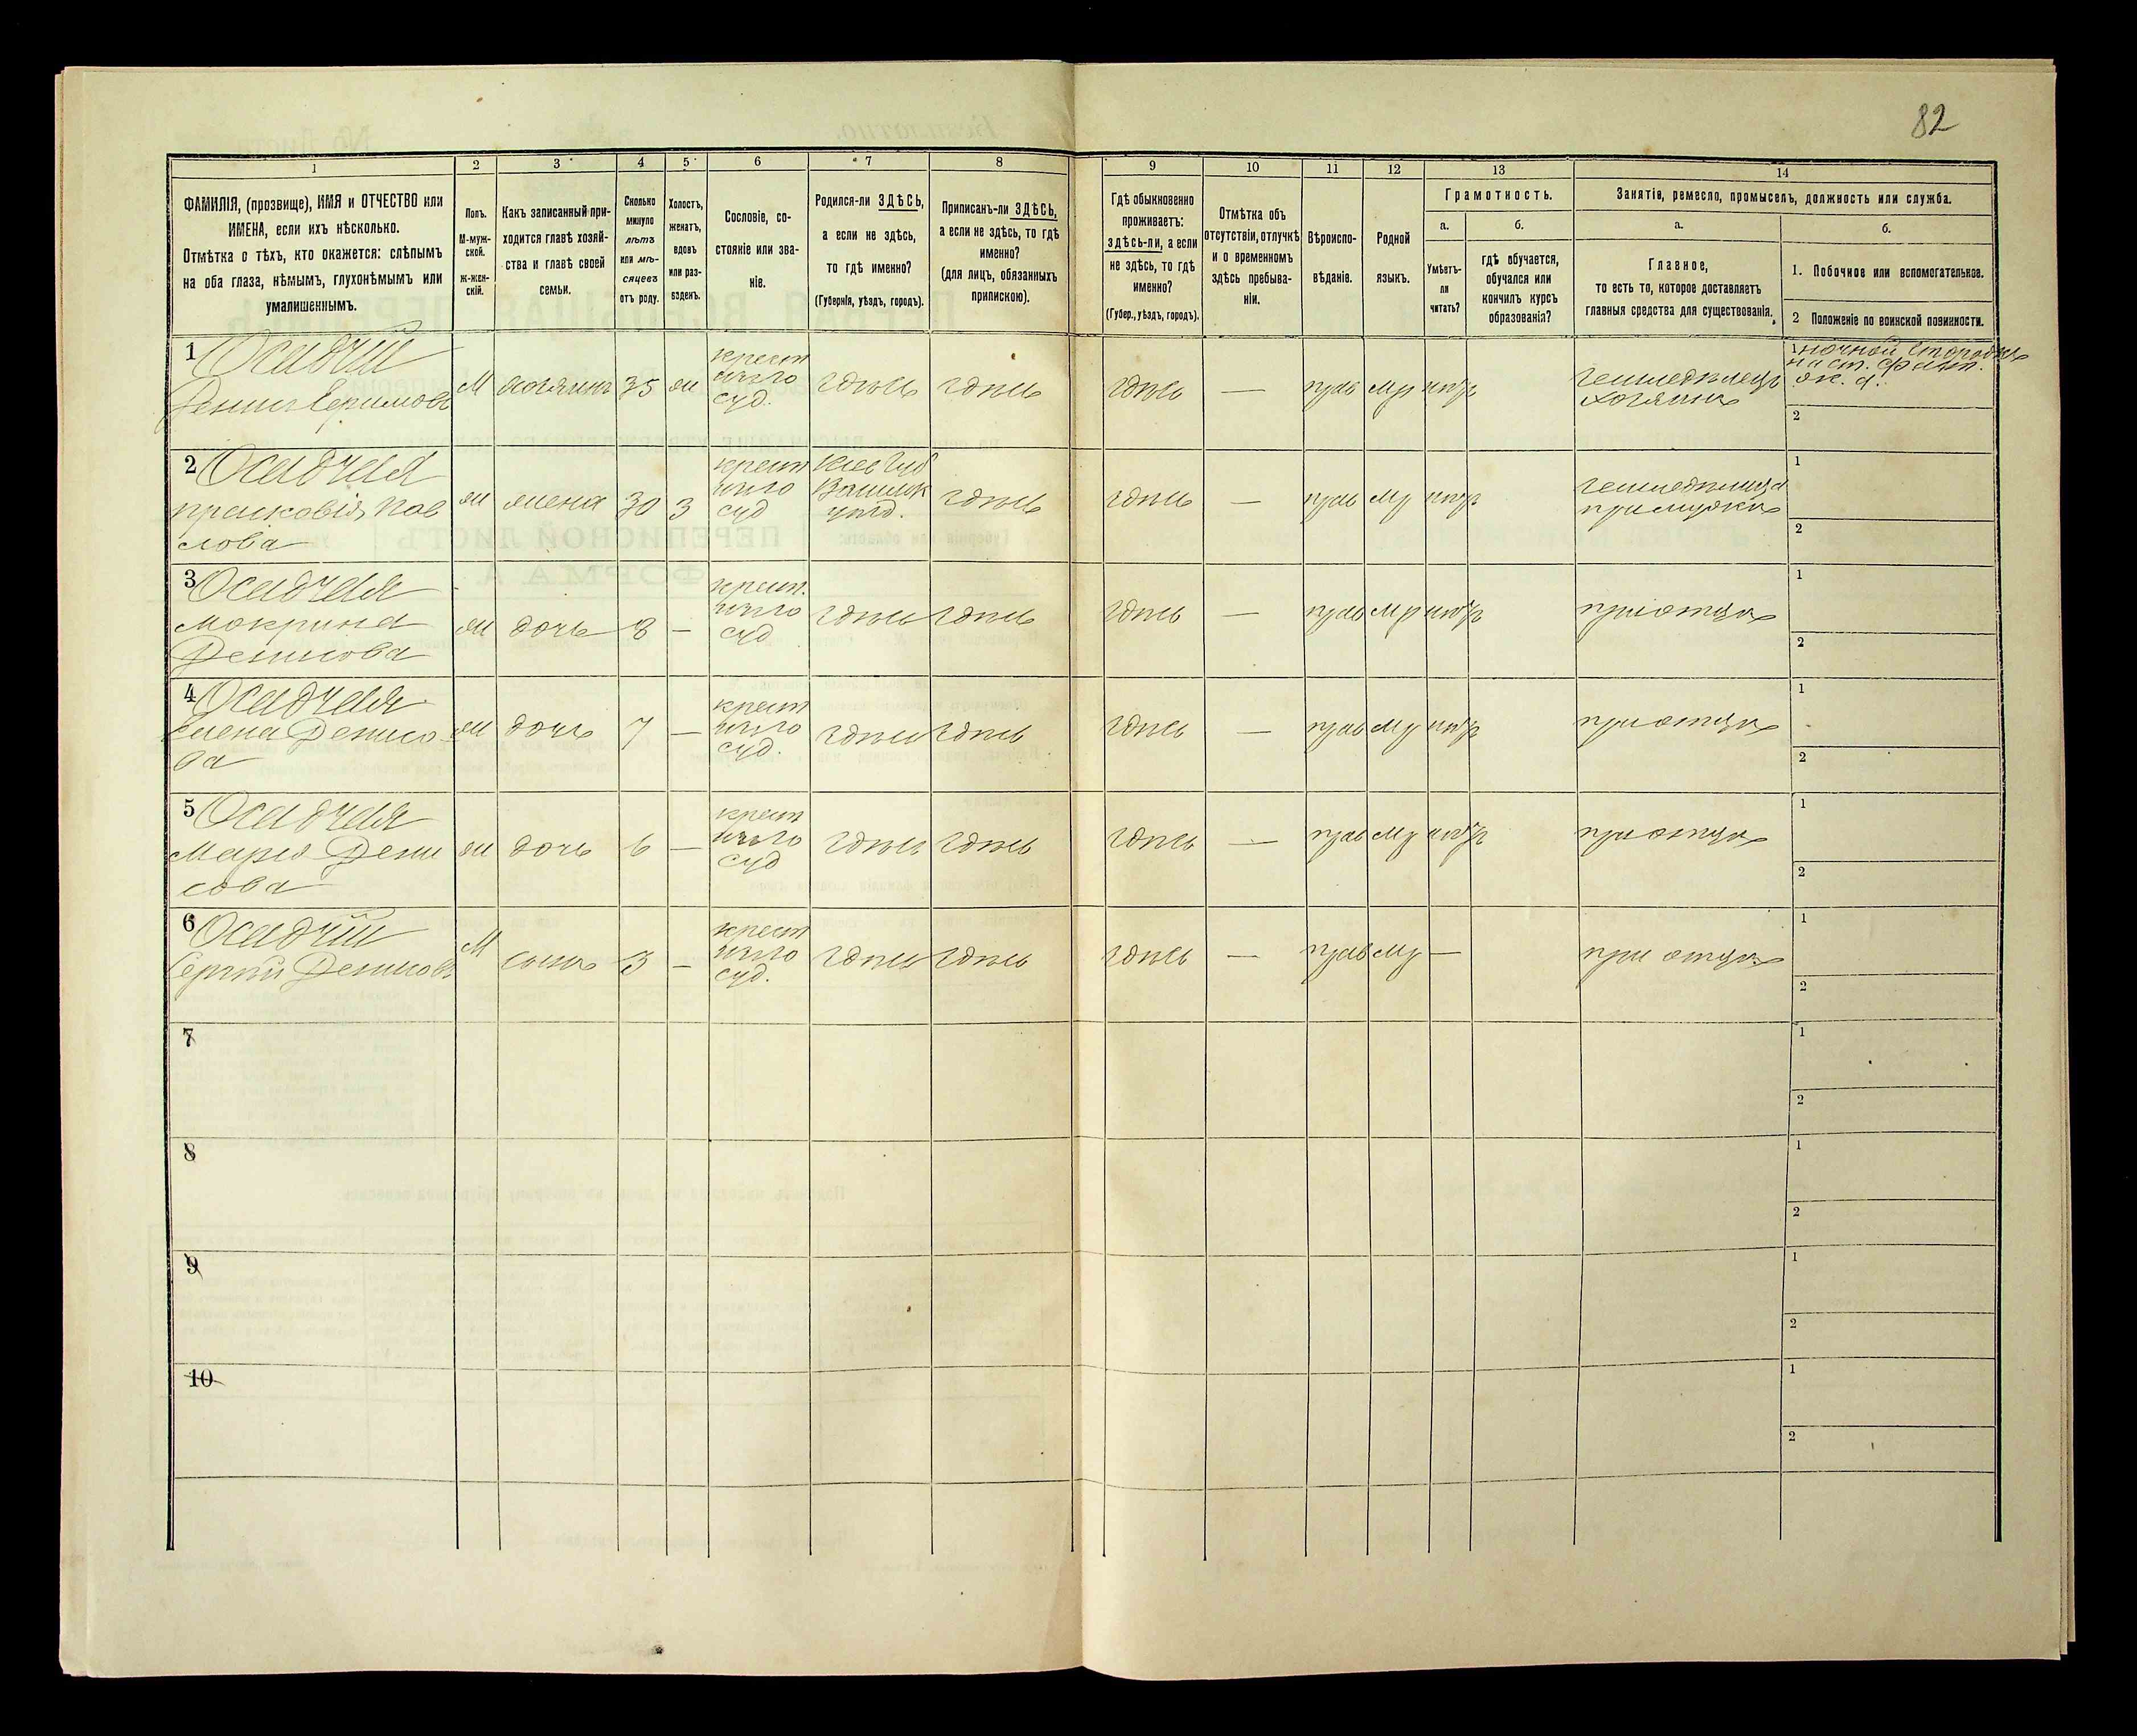 82
1
2
3
4
5
6
7
8
9
10
11
12
13
14
ФАМИЛІЯ, (прозвище), ИМЯ и ОТЧЕСТВО или
ИМЕНА, если ихъ нѣсколько.
Отмѣтка о тѣхъ, кто окажется: слѣпымъ
на оба глаза, нѣмымъ, глухонѣмымъ или
умалишеннымъ.
Полъ.
М-муж-
ской.
Ж-жен-
скій.
Какъ записанный при-
ходится главѣ хозяй-
ства и главѣ своей
семьи.
Сколько
минуло
лѣтъ
или мѣ-
сяцевъ
отъ роду.
Холостъ,
женатъ,
вдовъ
или раз-
веденъ.
Сословіе, со-
стояніе или зва-
ніе.
Родился-ли ЗДѢСЬ,
а если не здѣсь,
то гдѣ именно?
(Губернія, уѣздъ, городъ).
Приписанъ-ли ЗДѢСЬ,
а если не здѣсь, то гдѣ
именно?
(для лицъ, обязанныхъ
припискою).
Гдѣ обыкновенно
проживаетъ:
здѣсь-ли, а если
не здѣсь, то гдѣ
именно?
(Губер., уѣздъ, городъ).
Отмѣтка объ
отсутствіи, отлучкѣ
и о временномъ
здѣсь пребыва-
ніи.
Вѣроиспо-
вѣданіе.
Родной
языкъ.
Грамотность.
а.
Умѣетъ-
ли
читать?
б.
гдѣ обучается,
обучался или
кончилъ курсъ
образованія?
Занятія, ремесло, промыселъ, должность или служба.
а.
Главное,
то есть то, которое доставляетъ
главныя средства для существованія.
б.
1. Побочное или вспомогательное.
2 Положеніе по воинской повинности.
1 Осадчій
Денис Ефимовъ
М
хозяинъ
35
ж
крест
суд.
здѣсь
здѣсь
здѣсь
—
прав
мр
нѣтъ
земледѣлецъ
хозяинъ
1 ночной сторожъ
на ст. Фаст.
ж. д.
2
2 Осадчая
Прасковія Пав
лова
ж
жена
30
З
крест
суд
Кіев Губ
Васильк
уѣзд.
здѣсь
здѣсь
—
прав
мр
нѣтъ
земледѣлица
при мужѣ
1
2
3 Осадчая
Мокрина
Денисова
ж
дочь
8
—
крест.
суд
здѣсь
здѣсь
здѣсь
—
прав
мр
нѣтъ
при отцѣ
1
2
4 Осадчая
Елена Денисо
ва
ж
дочь
7
—
крест
суд.
здѣсь
здѣсь
здѣсь
—
прав
мр
нѣтъ
при отцѣ
1
2
5 Осадчая
Марія Дени
сова
ж
дочь
6
—
крест
суд
здѣсь
здѣсь
здѣсь
—
прав
мр
нѣтъ
при отцѣ
1
2
6 Осадчій
Сергѣй Денисовъ
М
сынъ
3
—
крест
суд.
здѣсь
здѣсь
здѣсь
—
прав
мр
—
при отцѣ
1
2
7
1
2
8
1
2
9
1
2
10
1
2